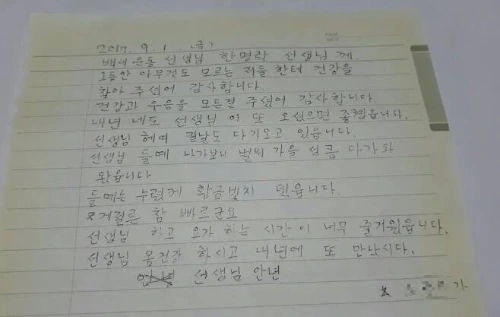 2017. 9. 1 (금)
백세 운동 선생님 한명락 선생님 께.
그동안 아무것도 모르는 저들 한테 건강을
찾아 주셨어 감사합니다
건강과 웃음을 모든걸 주셨어 감사합니다
내년 네도 선생님 이 또 오셨으면 좋겠습니다.
선생님 헤여 질날도 다가오고 있읍니다.
선생님 들에 나가보니 벌써 가을 성큼 다가와
왔읍니다
들에는 누렇게 황금빛치 됐읍니다.
세월른 참 빠르군요
선생님 하고 요가 하는 시간 이 너무 즐거웠읍니다.
선생님 몸건강 하시고 내년에 또 만납시다.
선생님 안년